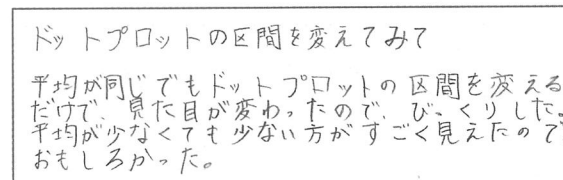 ドットプロットの区間を変えてみて
平均が同じでもドットプロットの区間を変える
だけで、見た目が変わったので、びっくりした。
平均が少なくても少ない方がすごく見えたので
おもしろかった。